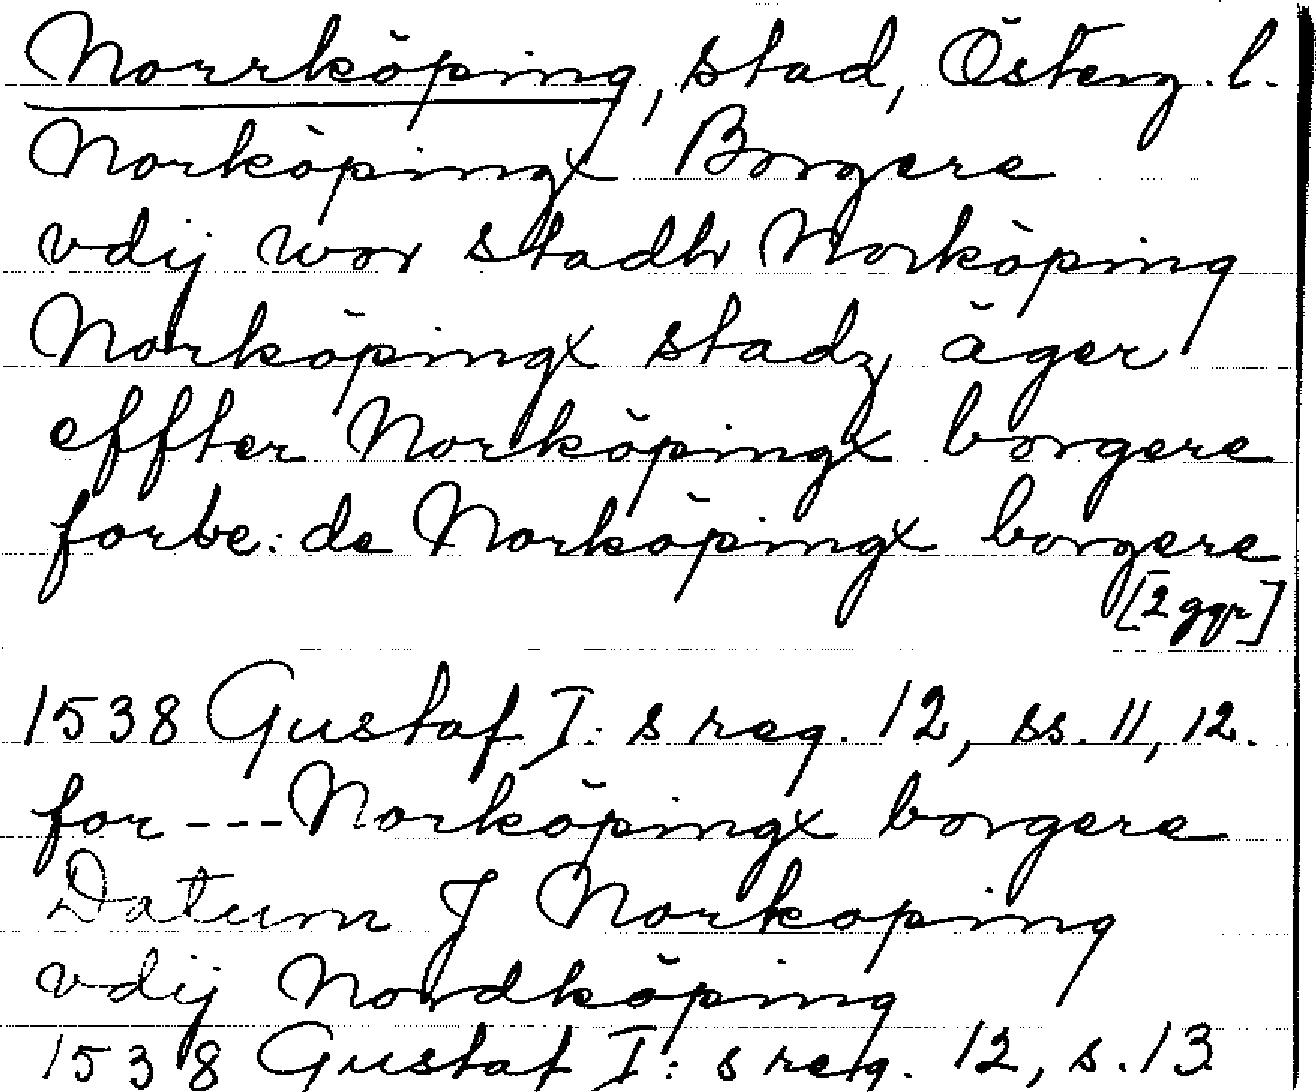 Norrköping, stad, Österg. l.
Norköpingx Borgere
vdij wor stadh Norköping
Norköpingx stadz äger
effter Norköpingx borgere
forbe: de Norköpingx borgere
[2 ggr]
1538 Gustaf I: s reg. 12, ss. 11, 12.
for --- Norköpingx borgere
Datum J Norkoping
vdij Nordköping
1538 Gustaf I: s reg. 12, s. 13